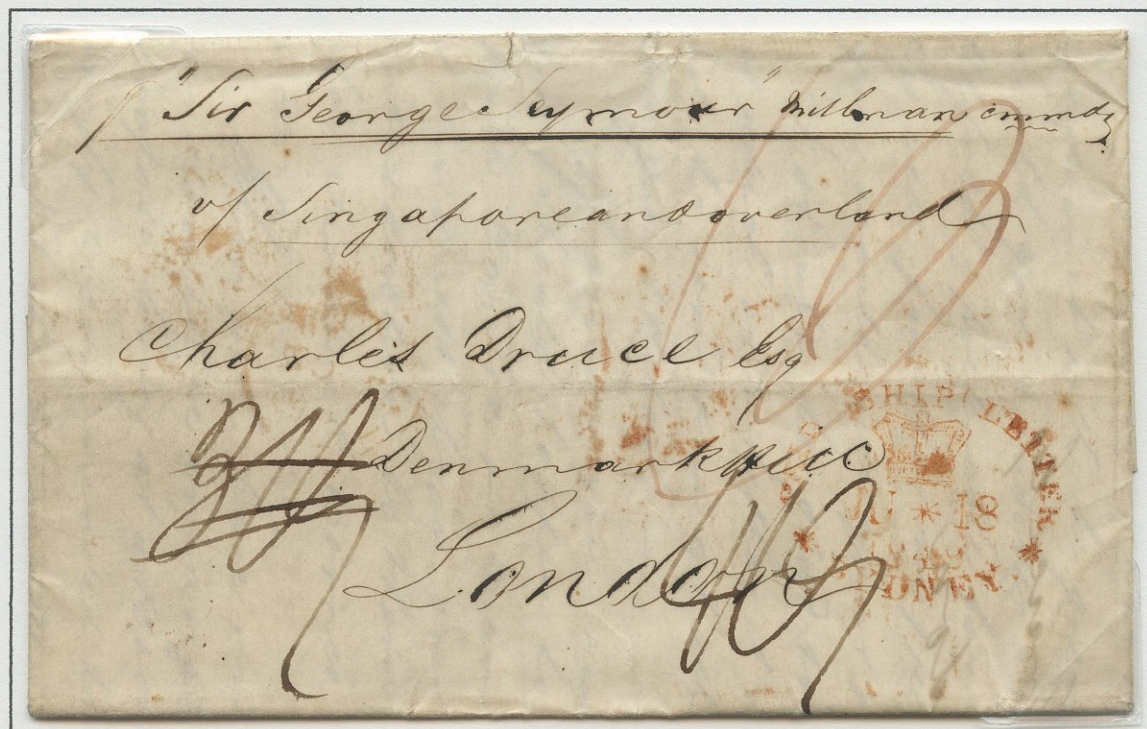 p "Sir George Seymour" Millman commdg
v/ Singapore and overland
Charles Druce Esq
Denmark Hill
London
SHIP LETTER
JU * 18
SYDNEY